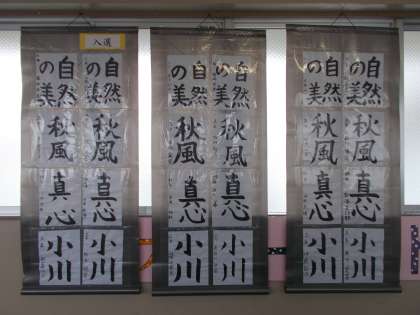 入選
自然の美
秋風
真心
小川
自然の美
秋風
真心
小川
自然の美
秋風
真心
小川
自然の美
秋風
真心
小川
自然の美
秋風
真心
小川
自然の美
秋風
真心
小川